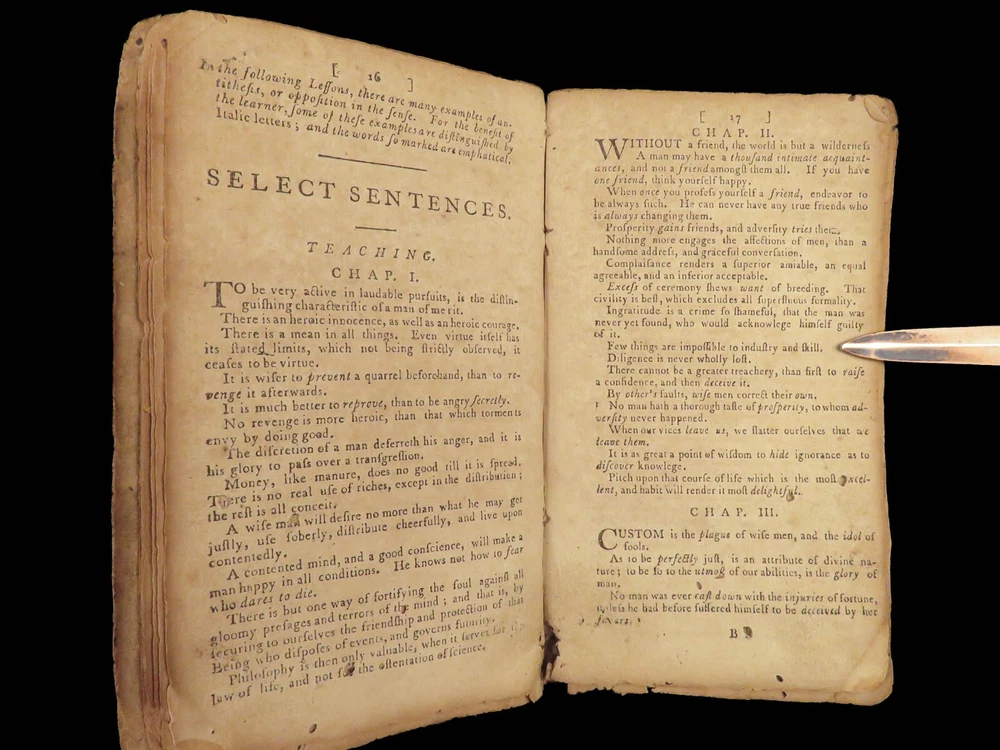 [ 16 ]
In the following Leſſons, there are many examples of an-
titheſis, or oppoſition in the ſenſe. For the benefit of
the learner, ſome of theſe examples are diſtinguiſhed by
Italic letters; and the words ſo marked are emphatical.
SELECT SENTENCES.
TEACHING.
CHAP. I.
TO be very active in laudable purſuits, is the diſtin-
guiſhing characteriſtic of a man of merit.
There is an heroic innocence, as well as an heroic courage.
There is a mean in all things. Even virtue itſelf has
its ſtated limits, which not being ſtrictly obſerved, it
ceaſes to be virtue.
It is wiſer to prevent a quarrel beforehand, than to re-
venge it afterwards.
It is much better to reprove, than to be angry ſecretly.
No revenge is more heroic, than that which torments
envy by doing good.
The diſcretion of a man deferreth his anger, and it is
his glory to paſs over a tranſgreſſion.
Money, like manure, does no good till it is ſpread.
There is no real uſe of riches, except in the diſtribution;
the reſt is all conceit.
A wiſe man will deſire no more than what he may get
juſtly, uſe ſoberly, diſtribute cheerfully, and live upon
contentedly.
A contented mind, and a good conſcience, will make a
man happy in all conditions. He knows not how to fear
who dares to die.
There is but one way of fortifying the ſoul againſt all
gloomy preſages and terrors of the mind; and that is, by
ſecuring to ourſelves the friendſhip and protection of that
Being who diſpoſes of events, and governs futurity.
Philoſophy is then only valuable, when it ſerves for the
law of life, and not for the oſtentation of ſcience.
[ 17 ]
CHAP. II.
WITHOUT a friend, the world is but a wilderneſs
A man may have a thouſand intimate acquaint-
ances, and not a friend amongſt them all. If you have
one friend, think yourſelf happy.
When once you profeſs yourſelf a friend, endeavor to
be always ſuch. He can never have any true friends who
is always changing them.
Proſperity gains friends, and adverſity tries them.
Nothing more engages the affections of men, than a
handſome addreſs, and graceful converſation.
Complaiſance renders a ſuperior amiable, an equal
agreeable, and an inferior acceptable.
Exceſs of ceremony ſhews want of breeding. That
civility is beſt, which excludes all ſuperfluous formality.
Ingratitude is a crime ſo ſhameful, that the man was
never yet found, who would acknowlege himſelf guilty
of it.
Few things are impoſſible to induſtry and ſkill.
Diligence is never wholly loſt.
There cannot be a greater treachery, than firſt to raiſe
a confidence, and then deceive it.
By other's faults, wiſe men correct their own.
No man hath a thorough taſte of proſperity, to whom ad-
verſity never happened.
When our vices leave us, we flatter ourſelves that we
leave them.
It is as great a point of wiſdom to hide ignorance as to
diſcover knowlege.
Pitch upon that courſe of life which is the moſt excel-
lent, and habit will render it moſt delightful.
CHAP. III.
CUSTOM is the plague of wiſe men, and the idol of
fools.
As to be perfectly juſt, is an attribute of divine na-
ture; to be ſo to the utmoſt of our abilities, is the glory of
man.
No man was ever caſt down with the injuries of fortune,
unleſs he had before ſuffered himſelf to be deceived by her
favors.
B